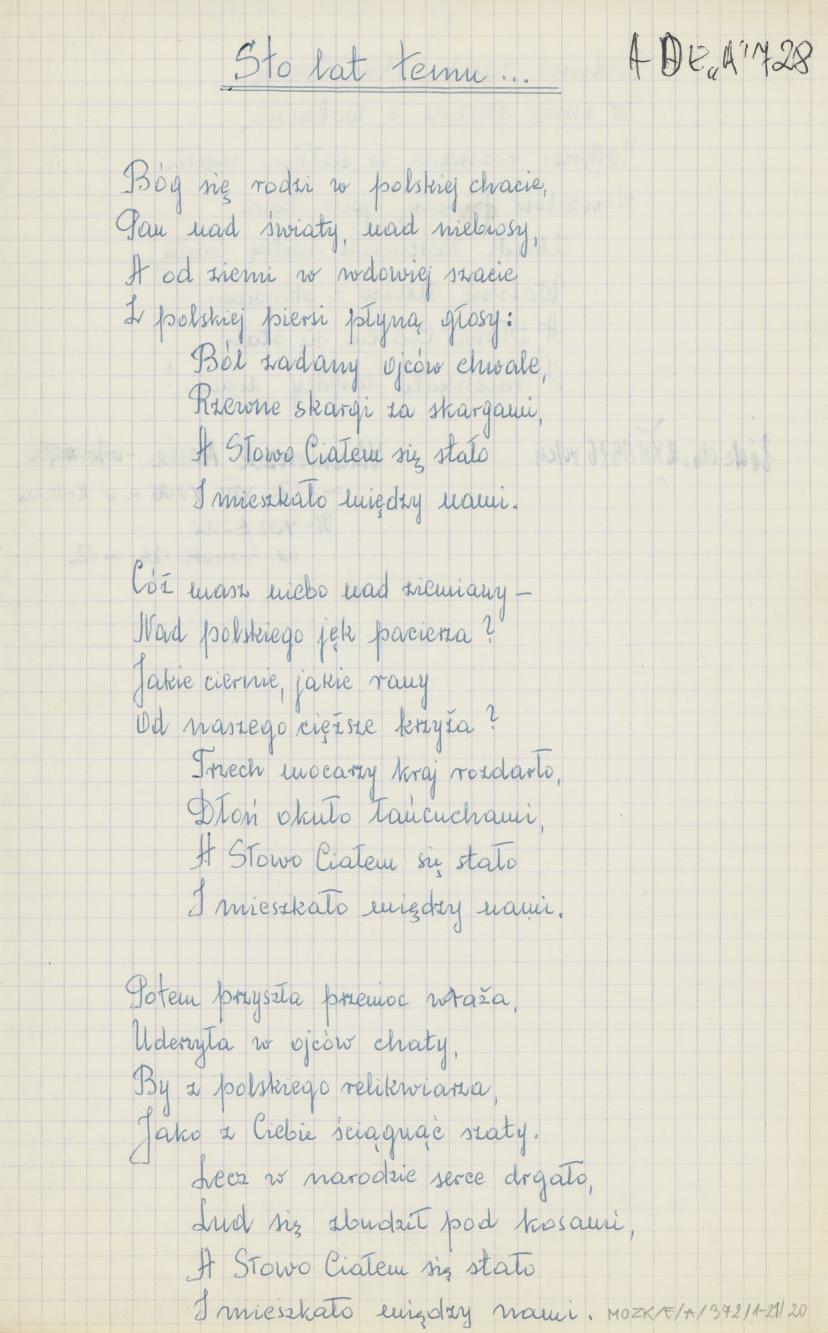 Sto lat temu...
A DE „A" 728
Bóg się rodzi w polskiej chacie,
Pan nad światy, nad niebiosy,
A od ziemi w wdowiej szacie
Z polskiej piersi płyną głosy:
Ból zadany ojców chwale,
Rzewne skargi za skargami,
A Słowo Ciałem się stało
I mieszkało między nami.
Cóż masz niebo nad ziemiany –
Nad polskiego jęk pacierza?
Jakie ciernie, jakie rany
Od naszego cięższe krzyża?
Trzech mocarzy kraj rozdarło,
Dłoń okuło łańcuchami,
A Słowo Ciałem się stało
I mieszkało między nami.
Potem przyszła przemoc wraża,
Uderzyła w ojców chaty,
By z polskiego relikwiarza,
Jako z Ciebie ściągnąć szaty.
Lecz w narodzie serce drgało,
Lud się zbudził pod kosami,
A Słowo Ciałem się stało
I mieszkało między nami.
MOZK/E/A/372/1-21/20